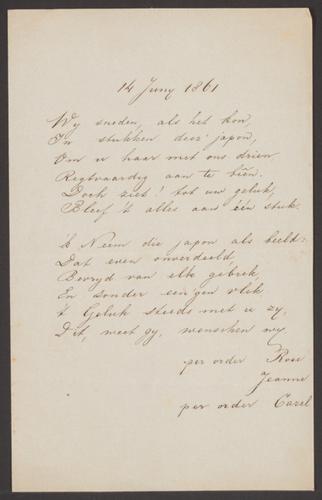 14 Juny 1861
Wy sneden, als het kon,
In stukken deez' japon,
Om u haar met ons drien
Regtvaardig aan te biên.
Doch ziet! tot uw geluk,
Bleef 't alles aan één stuk.
'k Neem die japon als beeld:
Dat even onverdeeld,
Bevryd van elk gebrek,
En zonder een'gen vlek
't Geluk steeds met u zy,
Dit, weet gy, wenschen wy.
per order Rose
Jeanne
per order Carel